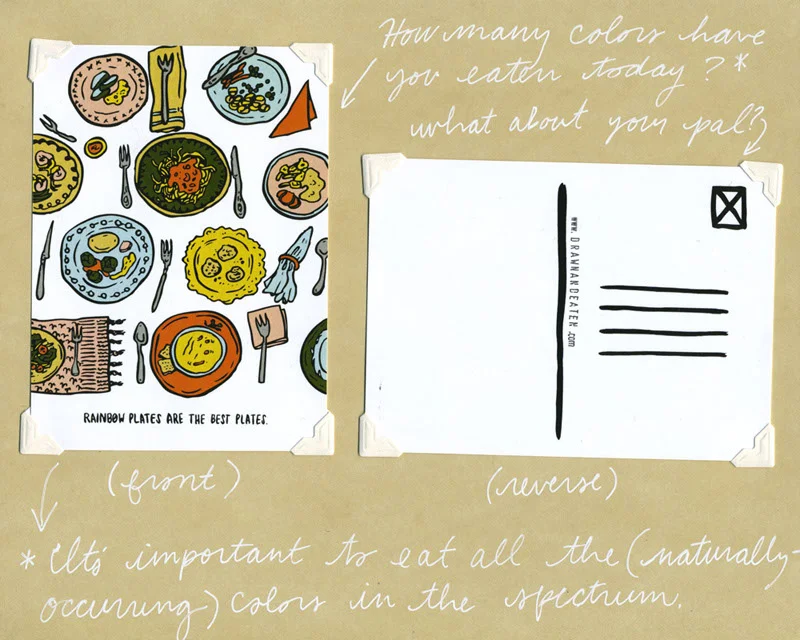 How many colors have
you eaten today?*
what about your pal?
RAINBOW PLATES ARE THE BEST PLATES.
www.DRAWNANDEATEN.com
(front)
(reverse)
* It's important to eat all the (naturally-
occurring) colors in the spectrum.